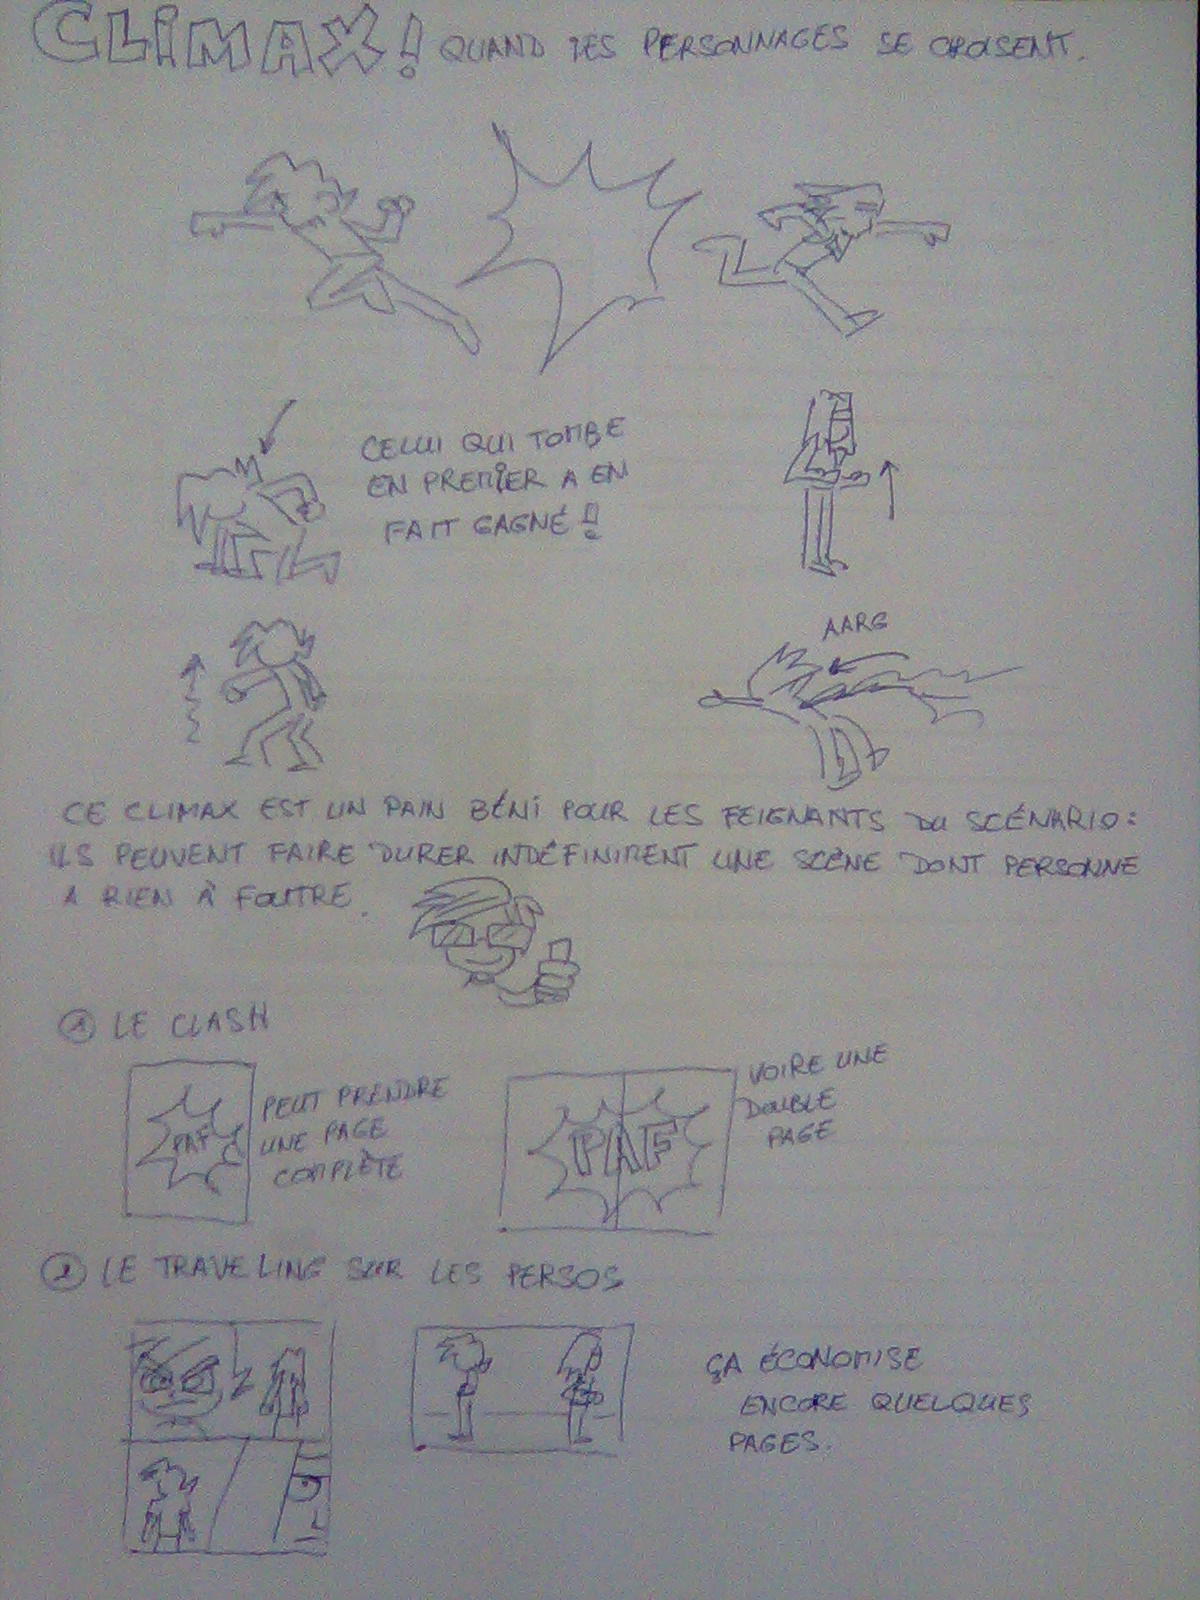 CLIMAX! QUAND DES PERSONNAGES SE CROISENT.
CELUI QUI TOMBE
EN PREMIER A EN
FAIT GAGNÉ!
AARG
CE CLIMAX EST UN PAIN BÉNI POUR LES FEIGNANTS DU SCÉNARIO:
ILS PEUVENT FAIRE DURER INDÉFINIMENT UNE SCÈNE DONT PERSONNE
A RIEN À FOUTRE.
① LE CLASH
PAF
PEUT PRENDRE
UNE PAGE
COMPLÈTE
PAF
VOIRE UNE
DOUBLE
PAGE
② LE TRAVELING SUR LES PERSOS
ÇA ÉCONOMISE
ENCORE QUELQUES
PAGES.